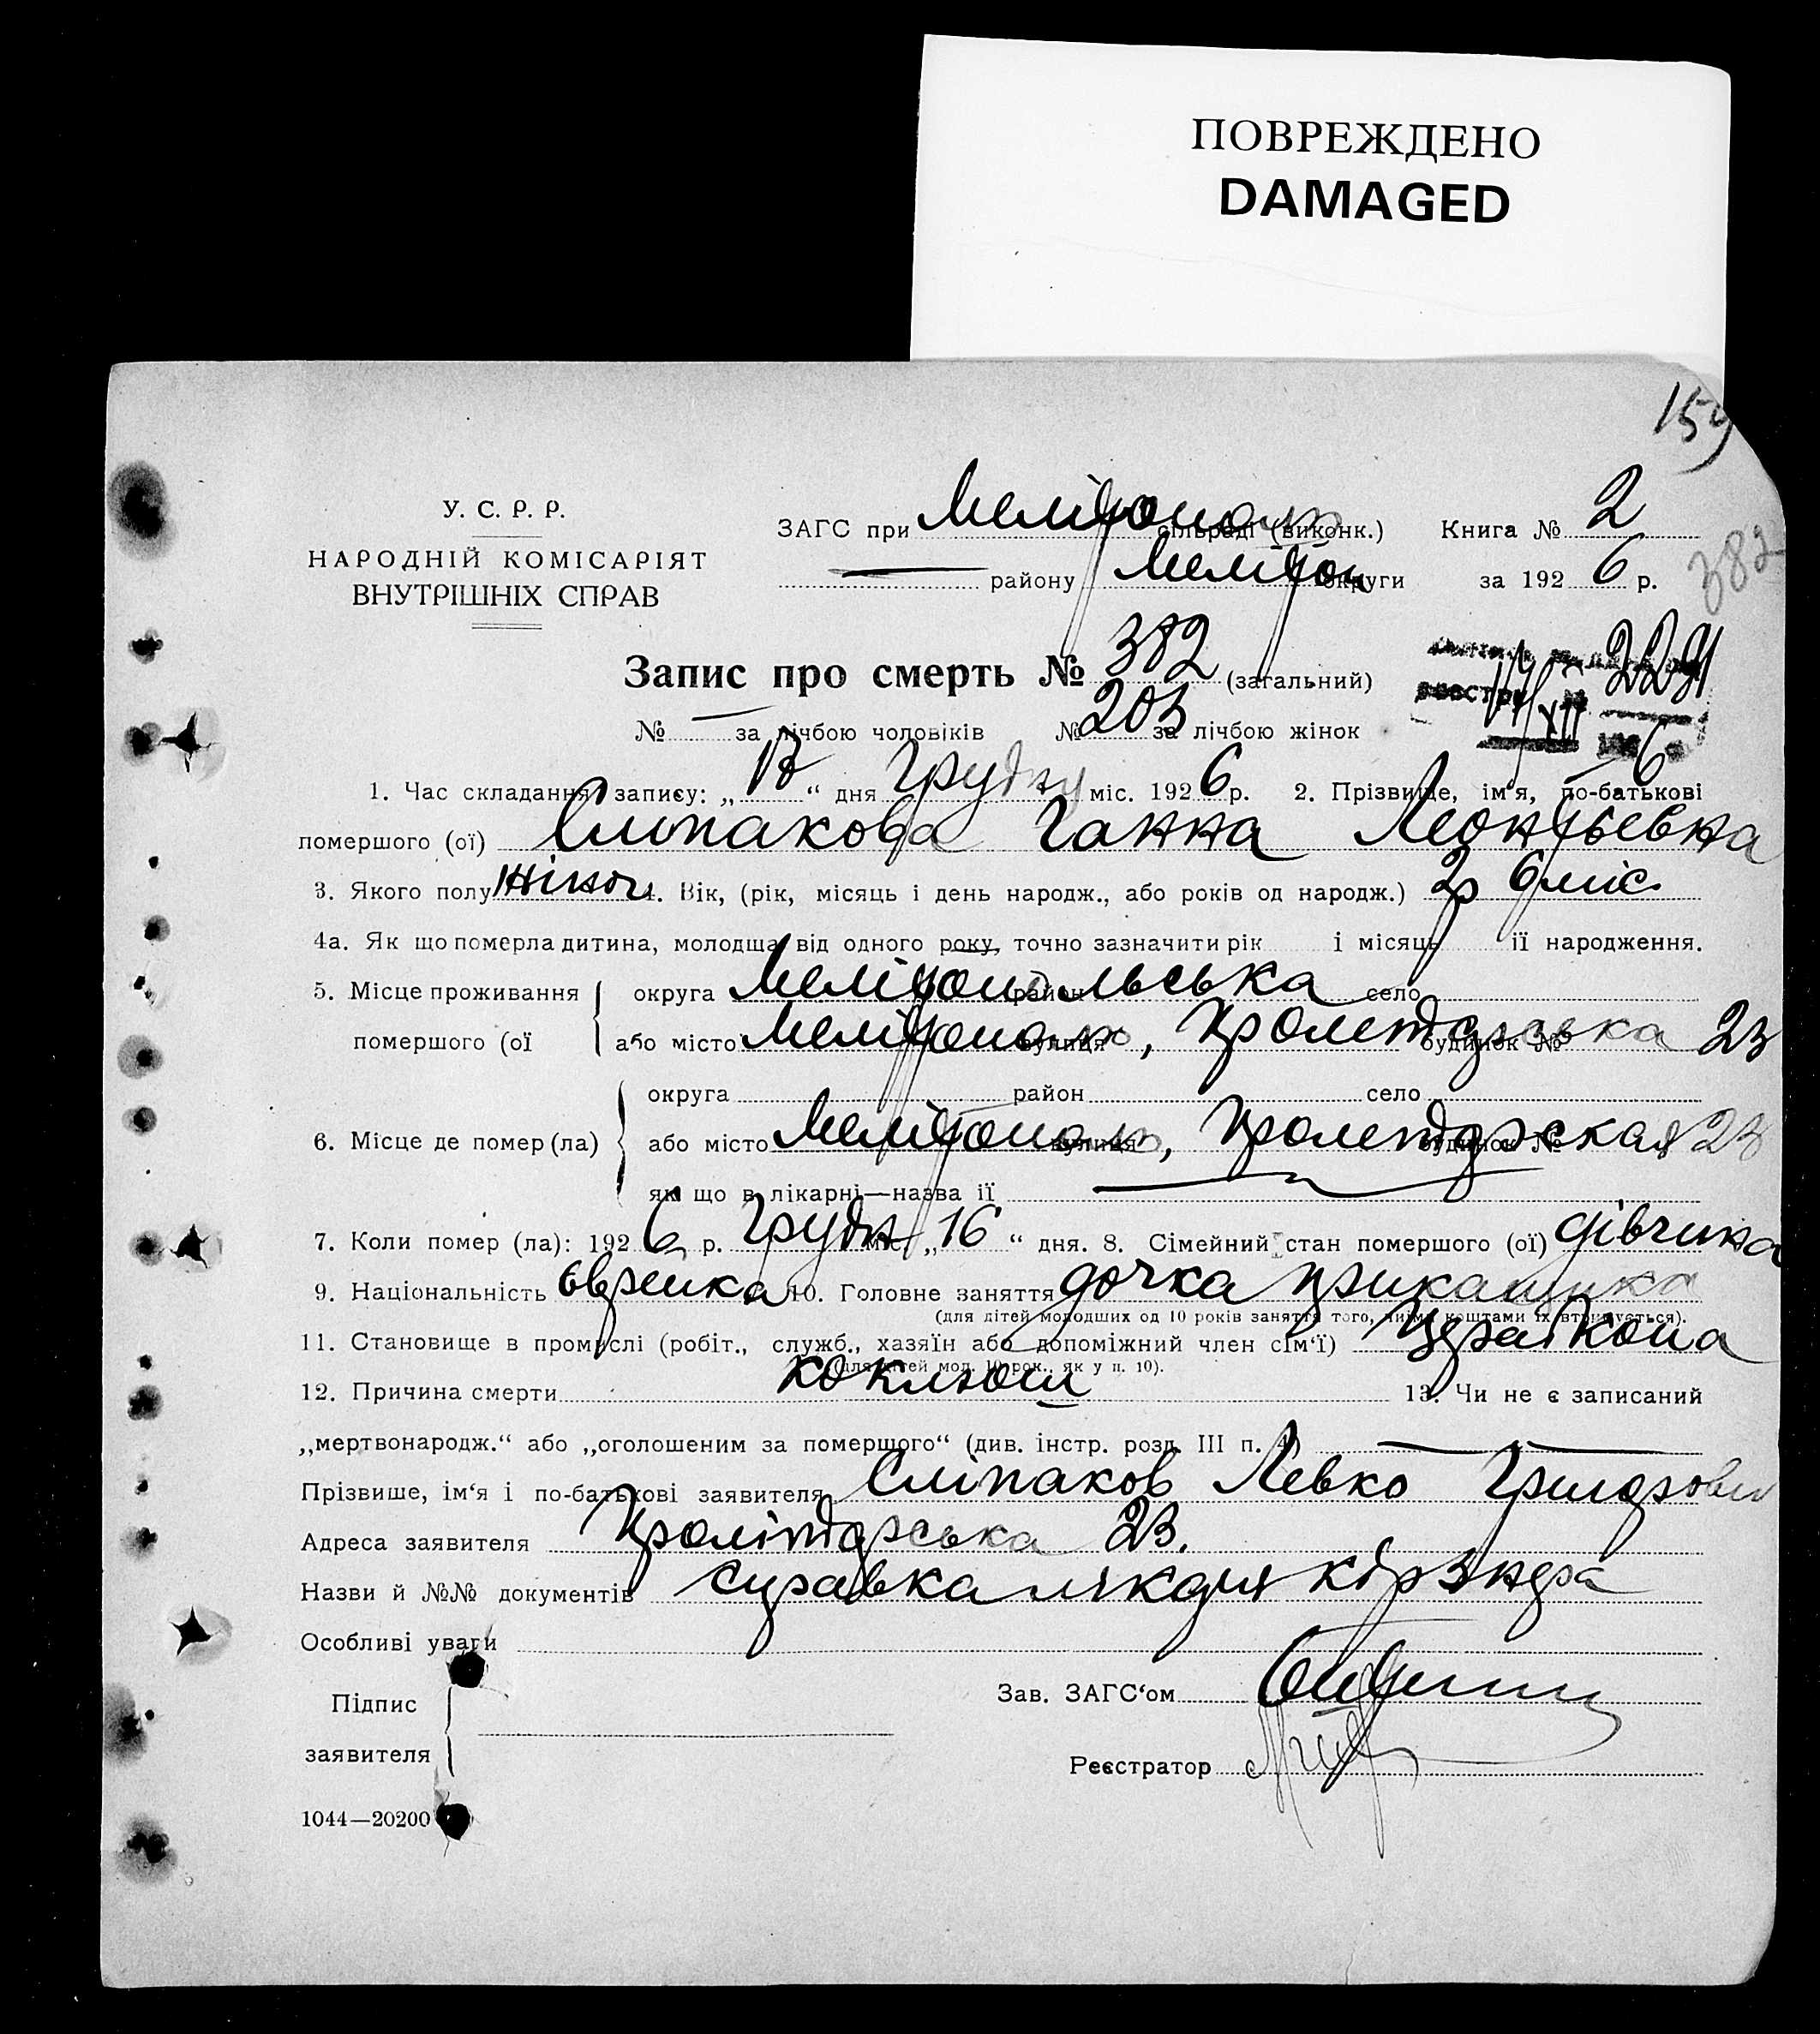 ПОВРЕЖДЕНО
DAMAGED
159
У. С. Р. Р.
НАРОДНІЙ КОМІСАРІЯТ
ВНУТРІШНІХ СПРАВ
ЗАГС при Мелітополь сільраді (виконк.) Книга № 2
— району Мелітоп округи за 1926 р.
382
Запис про смерть № 382 (загальний)
реєстру 2291
№ — за лічбою чоловіків № 203 за лічбою жінок
XII 6
1. Час складання запису: „ “ дня Грудня міс. 1926 р. 2. Прізвище, ім'я, по-батькові
помершого (ої) Сліпакова Ганна Леонтьевна
3. Якого полу жіноч 4. Вік, (рік, місяць і день народж., або років од народж.) 2р 6 міс.
4а. Як що померла дитина, молодща від одного року, точно зазначити рік і місяць її народження.
5. Місце проживання округа Мелітопольська район село
помершого (ої або місто Мелітополь, вулиця Пролетарська будинок № 23
округа район село
6. Місце де помер (ла) або місто Мелітополь, вулиця Пролетарская будинок № 23
як що в лікарні—назва її —
7. Коли помер (ла): 1926 р. Грудн міс. „16“ дня. 8. Сімейний стан помершого (ої) дівчина
9. Національність Єврейка 10. Головне заняття дочка прикащика
(для дітей молодших од 10 років заняття того, чиїми коштами їх втримується).
11. Становище в промислі (робіт., служб., хазяїн або допоміжний член сім'ї) Церабкопа
(для дітей мол. 10 рок., як у п. 10).
12. Причина смерти коклюш 13. Чи не є записаний
„мертвонародж.“ або „оголошеним за помершого“ (див. інстр. розд. III п. 4) —
Прізвище, ім'я і по-батькові заявителя Сліпаков Левко
Адреса заявителя Пролітарська 23.
Назви й №№ документів справка лікаря Кірзнера
Особливі уваги
Підпис
заявителя
Зав. ЗАГС'ом
Реєстратор
1044—20200